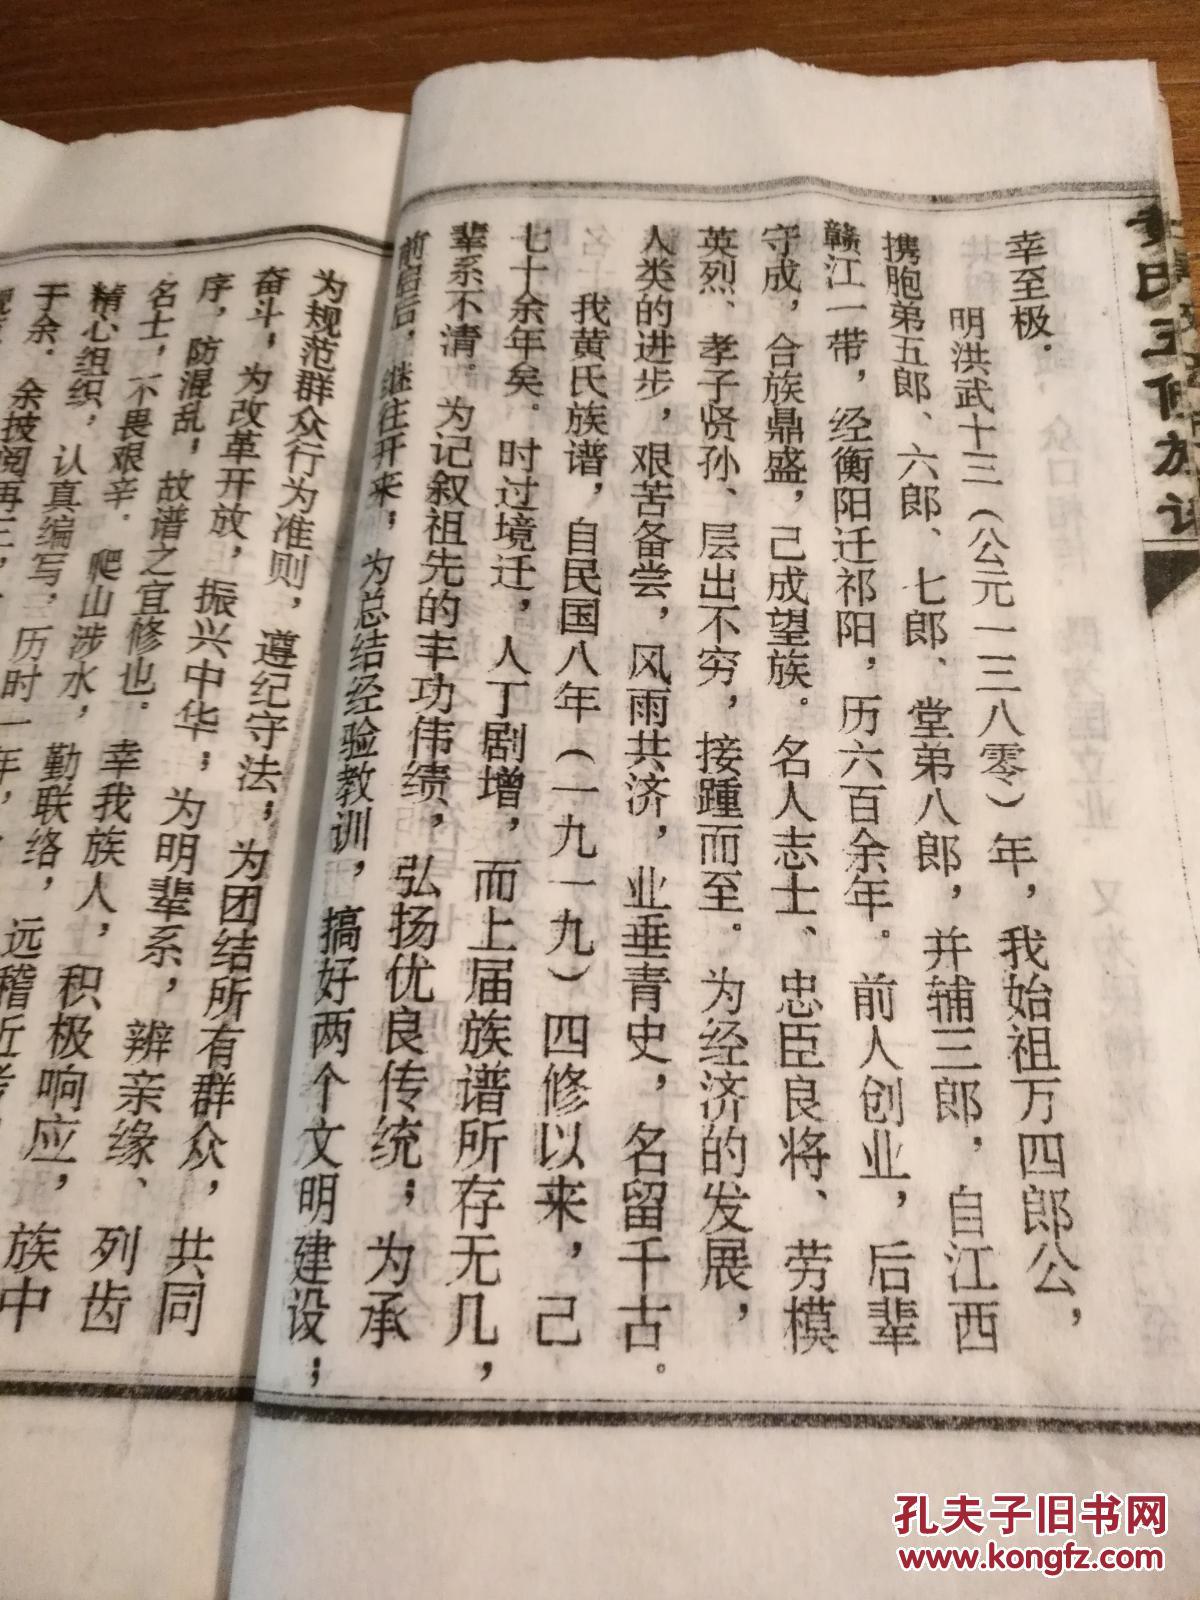 幸至极．
明洪武十三（公元一三八零）年，我始祖万四郎公，
携胞弟五郎、六郎、七郎、堂弟八郎，并辅三郎，自江西
赣江一带，经衡阳迁祁阳，历六百余年．前人创业，后辈
守成，合族鼎盛，己成望族．名人志士、忠臣良将、劳模
英烈、孝子贤孙、层出不穷，接踵而至．为经济的发展，
人类的进步，艰苦备尝，风雨共济，业垂青史，名留千古。
我黄氏族谱，自民国八年（一九一九）四修以来，己
七十余年矣．时过境迁，人丁剧增，而上届族谱所存无几，
辈系不清．为记叙祖先的丰功伟绩，弘扬优良传统；为承
前启后，继往开来；为总结经验教训，搞好两个文明建设；
为规范群众行为准则，遵纪守法；为团结所有群众，共同
奋斗；为改革开放，振兴中华；为明辈系，辨亲缘、列齿
序，防混乱；故谱之宜修也．幸我族人，积极响应，族中
名士，不畏艰辛．爬山涉水，勤联络，远稽近
精心组织，认真编写，历时一年，
于余．余技阅再三，
孔夫子旧书网
www.kongfz.com